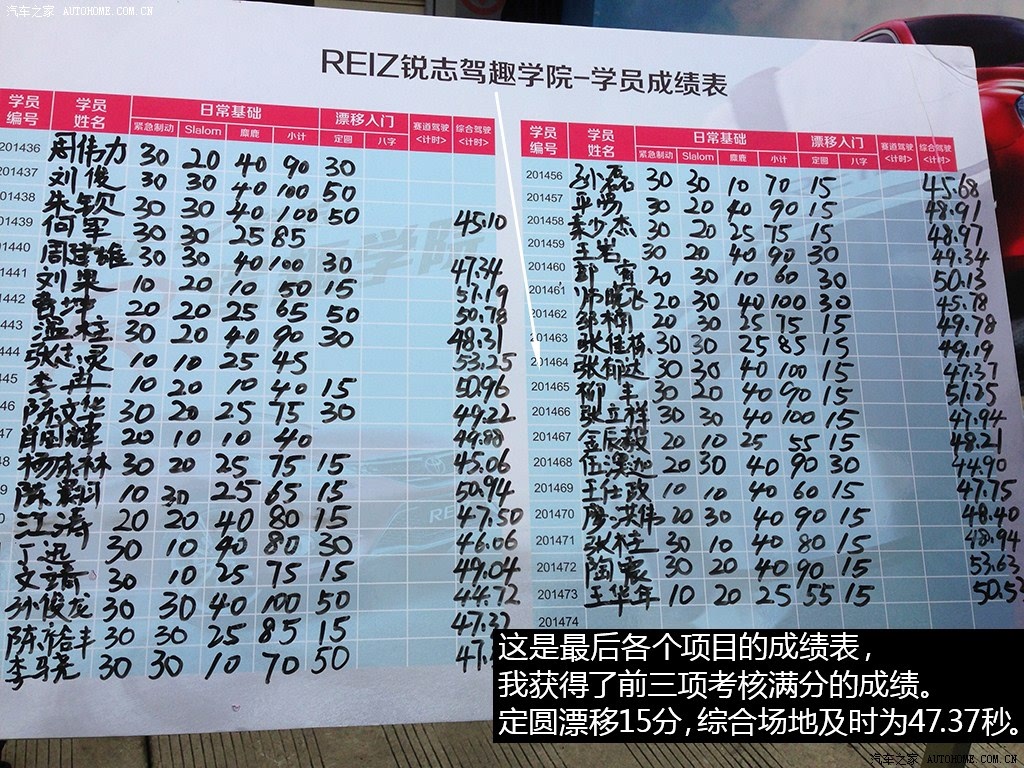 汽车之家 AUTOHOME.COM.CN
REIZ锐志驾趣学院-学员成绩表
学员编号 学员姓名 日常基础 漂移入门 赛道驾驶<计时> 综合驾驶<计时>
紧急制动 Slalom 麋鹿 小计 定圆 八字
201436 周伟力 30 20 40 90 30
201437 刘俊 30 30 40 100 50
201438 30 30 40 100 50 45.10
201439 何军 30 30 25 85
201440 周建雄 30 30 40 100 30 47.34
1441 刘果 10 20 10 50 15 51.19
1442 曹坤 20 20 25 65 50 50.78
1443 温柱 30 20 40 90 30 48.31
444 张志灵 10 10 25 45 53.25
445 李冉 10 20 10 40 15 50.96
46 陈文华 30 20 25 75 30 49.22
47 肖国辉 20 10 10 40 49.88
48 杨东林 30 20 25 75 15 45.06
9 10 30 25 65 15 50.94
0 江涛 20 20 40 80 15 47.50
丁迅 30 10 40 80 30 46.06
文奇 30 10 25 75 15 49.04
孙俊龙 30 30 40 100 50 44.72
陈裕丰 30 30 25 85 15 47.32
李马亮 30 30 10 70 50 47.
学员编号 学员姓名 日常基础 漂移入门 赛道驾驶<计时> 综合驾驶<计时>
紧急制动 Slalom 麋鹿 小计 定圆 八字
201456 孙磊 30 30 10 70 15 45.68
201457 30 20 40 90 15 48.91
201458 秦少杰 30 20 25 75 15 48.97
201459 王岩 30 20 40 90 30 49.34
201460 20 30 10 60 30 50.13
201461 师晓飞 20 30 40 100 30 45.78
201462 20 30 25 75 15 49.78
201463 30 30 25 85 15 49.19
201464 张郁达 30 30 40 100 15 47.37
201465 柳丰 30 20 40 90 15 51.85
201466 张立祥 30 30 40 100 15 47.94
201467 金辰毅 20 10 25 55 15 48.21
201468 20 30 40 90 30 44.90
201469 王仕政 10 10 40 60 15 47.75
201470 廖洪伟 20 30 40 90 15 48.40
201471 张柱 30 10 40 80 15 48.94
201472 陶震 30 20 40 90 15 53.63
201473 王华年 10 20 25 55 15 50.5
201474
这是最后各个项目的成绩表，
我获得了前三项考核满分的成绩。
定圆漂移15分，综合场地及时为47.37秒。
汽车之家 AUTOHOME.COM.CN